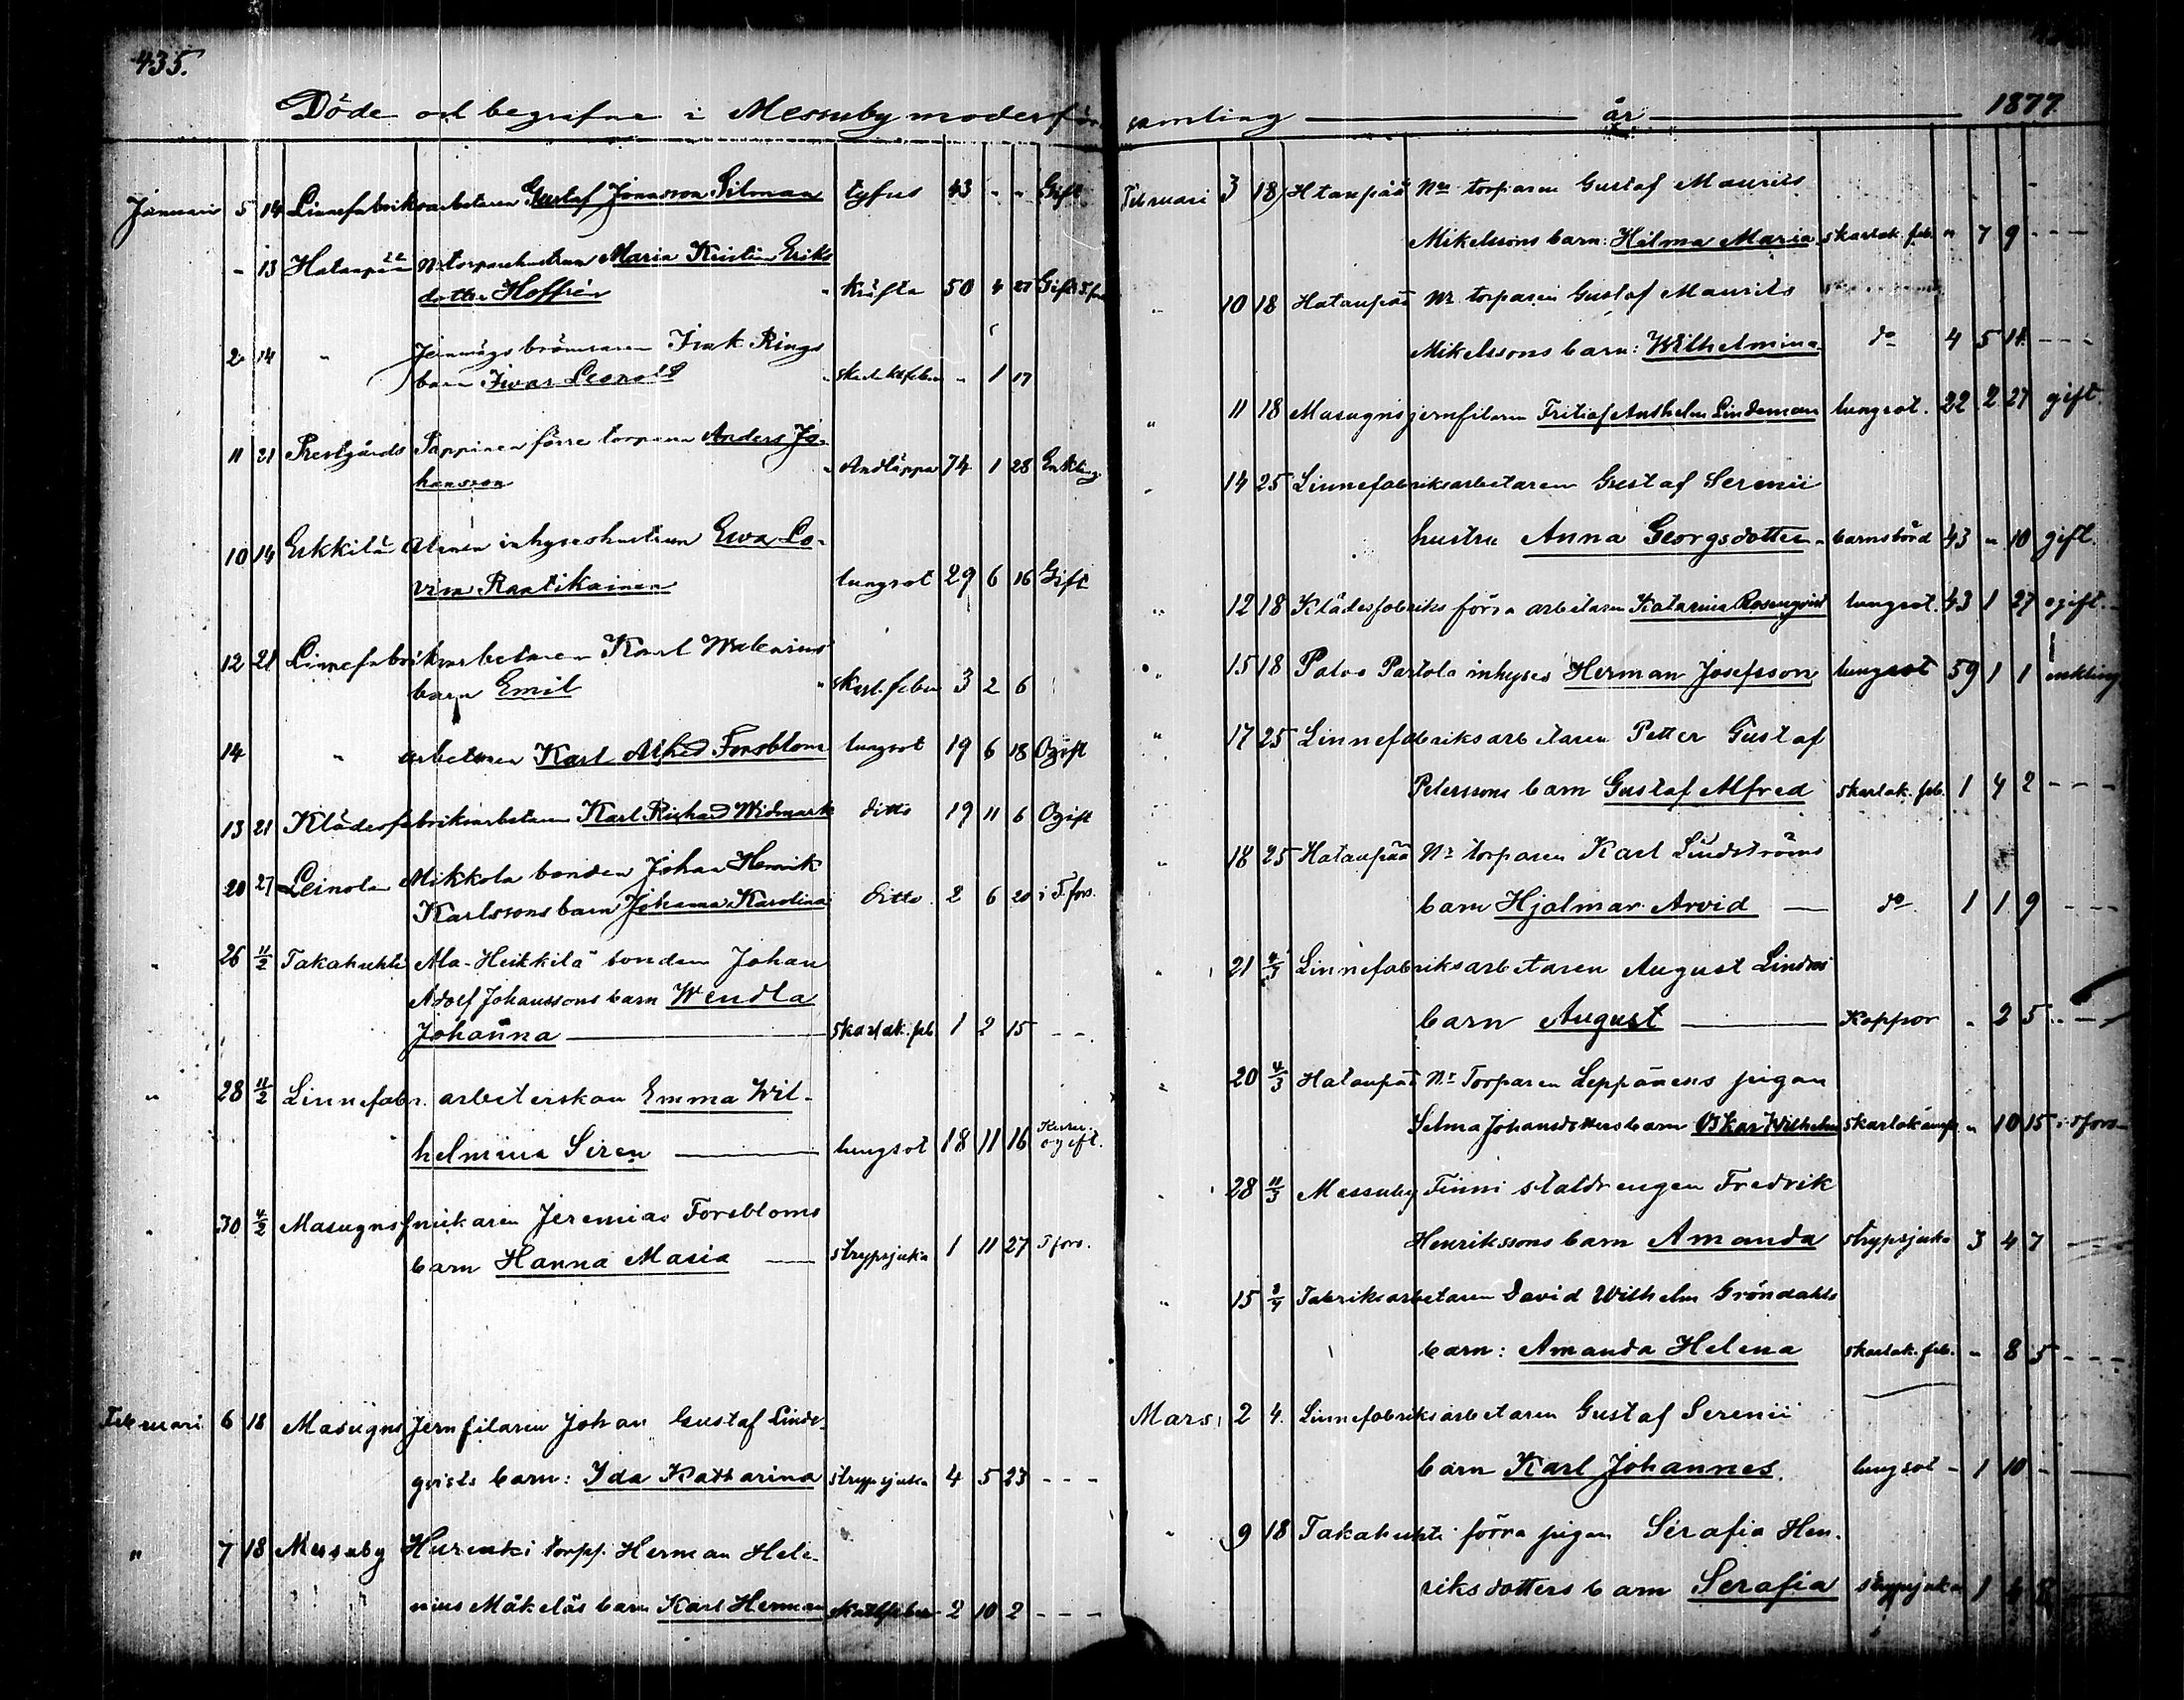 435.
Döde och begrafne i Messuby moderför samling år 1877
Januari 5 14 Linnefabriksarbetaren Gustaf Jonasson Silman tyfus 43 " " Gift
" 13 Hatanpää Nr torparehustrun Maria Kristin Eriks
dotter Hoffrén kräfta 50 4 27 Gift T.fors
2 14 " Jernvägs brömsaren Isak Rings
barn Ivar Leopold skarlaksfeber " 1 17
11 21 Prestgårds Pappinen förre torparen Anders Jo-
hansson Andtäppa 74 1 28 Enkling
10 14 Erkkilä Alanen inhyseshustrun Eva Lo-
visa Raatikainen lungsot 29 6 16 Gift
12 21 Linnefabriksarbetaren Karl Walenius
barn Emil skarl.feber 3 2 6
14 " arbetaren Karl Alfred Forsblom lungsot 19 6 18 Ogift
13 21 Klädesfabriksarbetaren Karl Richard Widmark ditto 19 11 6 Ogift
20 27 Leinola Mikkola bonden Johan Henrik
Karlssons barn Johanna Karolina ditto 2 6 20 i T.fors.
" 26 11/2 Takahuhti Ala-Heikkilä bonden Johan
Adolf Johanssons barn Wendla
Johanna skarlak.feb 1 2 15 - -
" 28 11/2 Linnefabr. arbeterskan Emma Wil-
helmina Siren lungsot 18 11 16 ogift.
" 30 4/2 Masugns snickaren Jeremias Forsbloms
barn Hanna Maria strypsjuka 1 11 27 T fors.
Februari 6 18 Masugns Jernfilaren Johan Gustaf Lind-
qvists barn: Ida Katharina strypsjuka 4 5 23 - - -
" 7 18 Messuby Hurenki torpp. Herman Hele-
nius Mäkeläs barn Karl Herman skarlfeber 2 10 2 - - -
Februari 3 18 Hatanpää Nr torparen Gustaf Maurits
Mikelssons barn: Hilma Maria skarlak. feb. " 7 9 - - -
" 10 18 Hatanpää Nr torparen Gustaf Maurits
Mikelssons barn: Wilhelmina do 4 5 14 - - -
" 11 18 Masugns jernfilaren Fritiof Anshelm Lindeman lungsot. 22 2 27 gift.
" 14 25 Linnefabriksarbetaren Gustaf Serenii
hustru Anna Georgsdotter barnsbörd 43 " 10 gift.
" 12 18 Klädesfabriks förra arbetaren Katarina Rosenqvist lungsot. 43 1 27 ogift.
" 15 18 Patos Partola inhyses Herman Josefsson lungsot 59 1 1 enkling
" 17 25 Linnefabriksarbetaren Petter Gustaf
Peterssons barn Gustaf Alfred skarlak. feb. 1 4 2 - - -
" 18 25 Hatanpää Nr torparen Karl Lindströms
barn Hjalmar Arvid do 1 1 9 - - -
" 21 4/3 Linnefabriksarbetaren August Lindros
barn August Koppor " 2 5 - -
" 20 4/3 Hatanpää Nr Torparen Leppänens pigan
Selma Johansdotters barn Oskar Wilhelm skarlakansfr " 10 15 i Tfors
" 28 11/3 Messuby Finni stalldrengen Fredrik
Henrikssons barn Amanda strypsjuka 3 4 7 - -
" 15 2/4 Fabriksarbetaren David Wilhelm Gröndahls
barn: Amanda Helena skarlak. feb. " 8 5 - - -
Mars 2 4. Linnefabriksarbetaren Gustaf Serenii
barn Karl Johannes. lungsot - 1 10 -
" 9 18 Takahuhti förra pigan Serafia Hen-
riksdotters barn Serafia strypsjuka 1 4